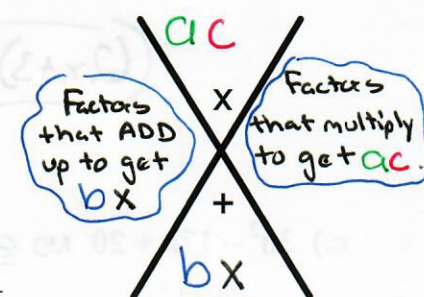 ac
x
Factors
that ADD
up to get
bx
Factors
that multiply
to get ac.
+
bx